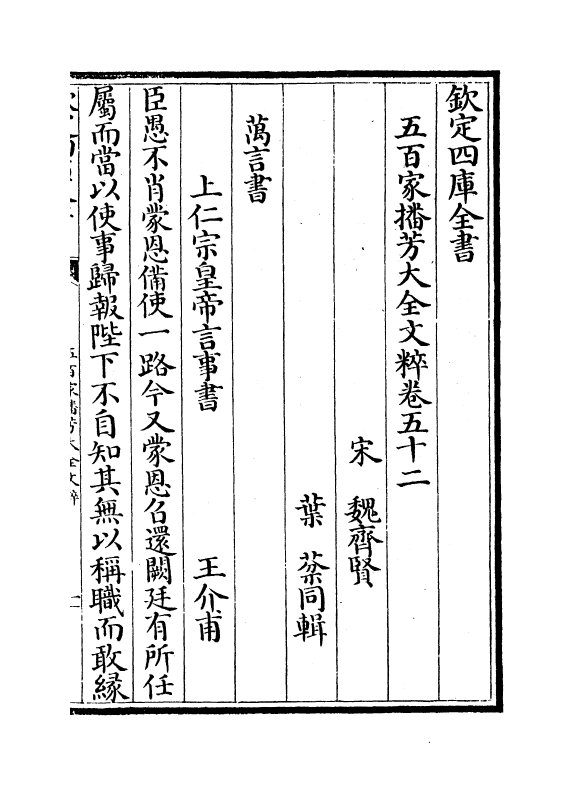 欽定四庫全書
五百家播芳大全文粹卷五十二
宋 魏齊賢
葉 棻同輯
萬言書
上仁宗皇帝言事書 王介甫
臣愚不肖蒙恩備使一路今又蒙恩召還闕廷有所任
屬而當以使事歸報陛下不自知其無以稱職而敢緣
五百家播芳大全文粹